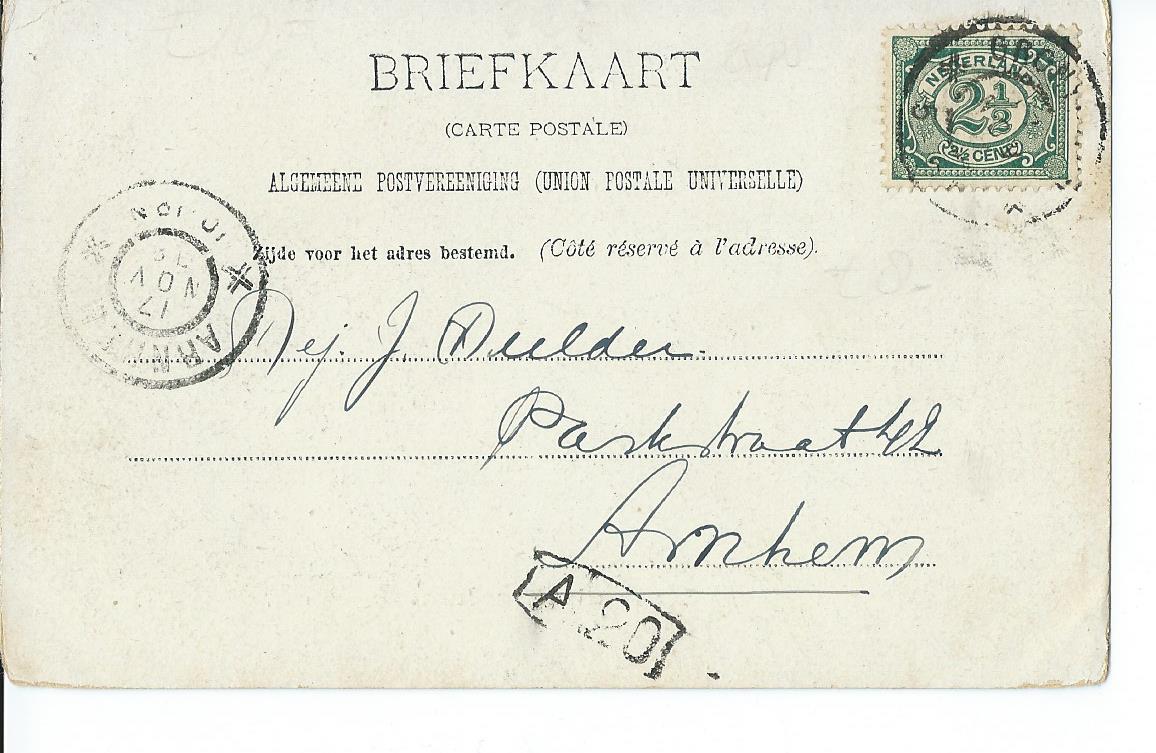 BRIEFKAART
(CARTE POSTALE)
ALGEMEENE POSTVEREENIGING (UNION POSTALE UNIVERSELLE)
Zijde voor het adres bestemd. (Côté réservé à l'adresse).
NEDERLAND
2½
2½ CENT
ARNHEM
17
NOV
Mej. J Deelder.
Parkstraat 42
Arnhem
A 20